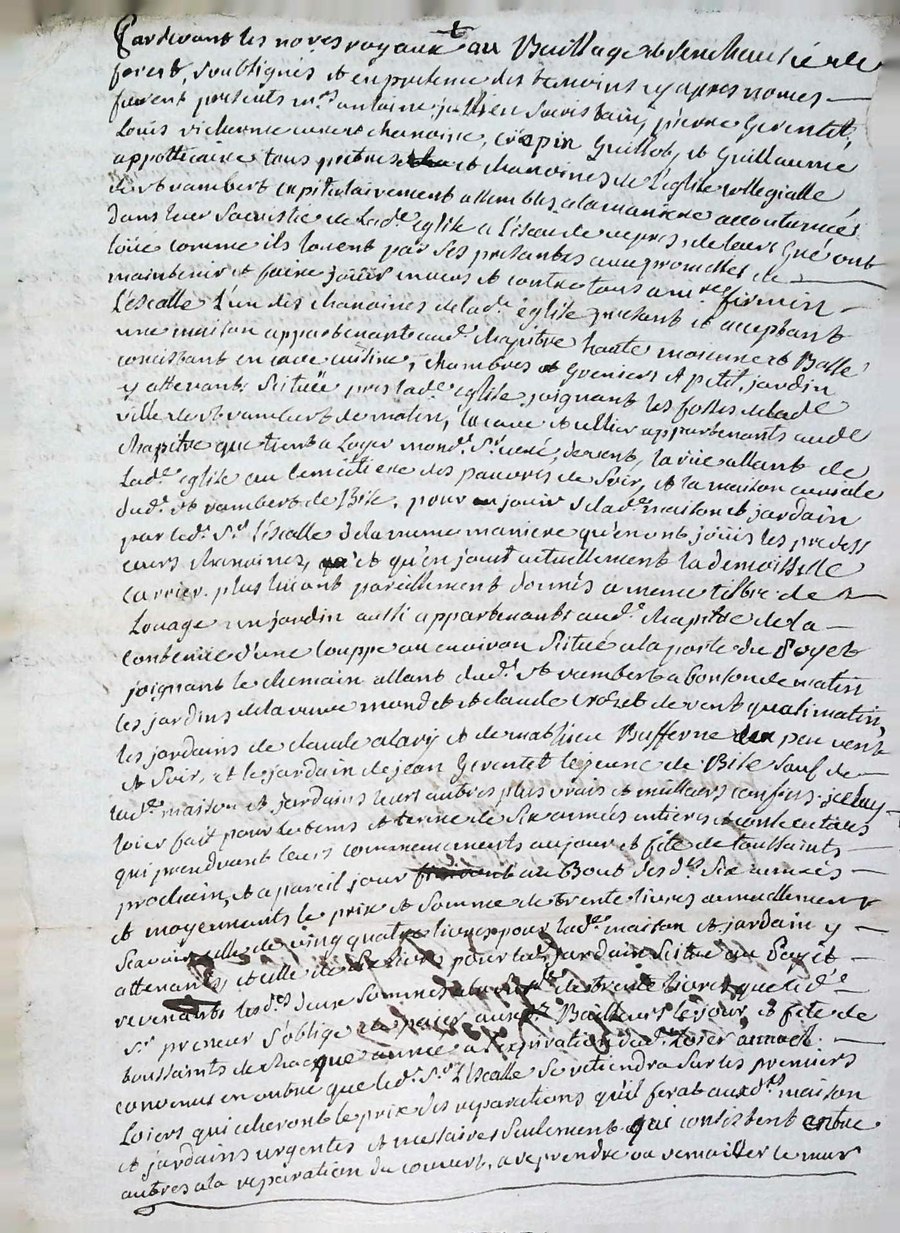 Pardevant les no.res royaux au Baillage et senechaussé de
forest, soubsignés et en presence des temoins cy apres només
furent presents m.rs antoine jullien sacristain, pierre Gerentet,
Louis vicherme curé et chanoine, crepin Guillot, et Guillaume
appotticaire tous prêtres et chanoines de L'église collegialle
de st rambert capitulairement assemblés a la maniere accoutumée
dans leur sacristie de Lad.e eglise a l'issue de vepres, de leurs Gré ont
loüé comme ils louent par ses presantes avec promesses de
maintenir et faire joüir envers et contre tous a m.re firmin
L'escalle L'un des chanoines de lad.e église present et acceptant
une maison appartenante aud.t chapitre haute moienne et Basse
concistant en cave cuisine, chambres et Greniers et petit jardin
y attenant scituée pres lad.e eglise joignant les fossés de lad.e
ville de st rambert de matin, la cave et cellier appartenants aud.t
chapitre que tient a Loyer mond.t s.r curé, de vent, la rüe allant de
Lad.e eglise au cemitiere des pauvres de soir, et la maison curiale
dud.t st rambert de Bise, pour jouir de lad.e maison et jardain
par led.t s.r L'escalle de la meme maniere qu'en ont joüis les predess
eurs chanoines, et qu'en jouit actuellement la demoiselle
carrier. plus luy ont pareillement donnés a meme tiltre de
Louage un jardin aussi appartenants aud.t chapitre de la
contenüe d'une couppe ou environ scitué a la porte du Poyet
joignant le chemain allant dud.t st rambert a bonson de matin
les jardins de la veuve mondet et claude crozet de vent quasi matin,
les jardains de claude alary et de mathieu Bufferne peu vent
et soir, et le jardain de jean Gerentet lejeune de Bise sauf de
lad.e maison et jardains leurs autres plus vrais et meilleurs confins. jceluy
loier fait pour le tems et terme de six années entieres et consecutives
qui prendront leurs commencements au jour et fête de toussaints
prochain, et a pareil jour au Bout desd.s six années
et moyennants le prix et somme de trente livres annuellement
scavoir celle de vingt quatre livres pour lad.e maison et jardain y
attenants, et celle de six livres pour led.t jardain scitué au Poyet
revenants lesd.s deux sommes a la susd.te de trente livres que led.t
s.r preneur s'oblige de paier auxd.s Bailleurs le jour et fête de
toussaints de chacque année a l'expiration dud.t Loïer annuel.
convenus en outre que led.t s.r L'escalle se retiendra sur les premiers
Loiers qui echeront le prix des reparations qu'il ferat auxd.ts maison
et jardains urgentes et nessaires seulement qui consistent entre
autres a la reparation du couvert, a reprendre ou remailler le mur